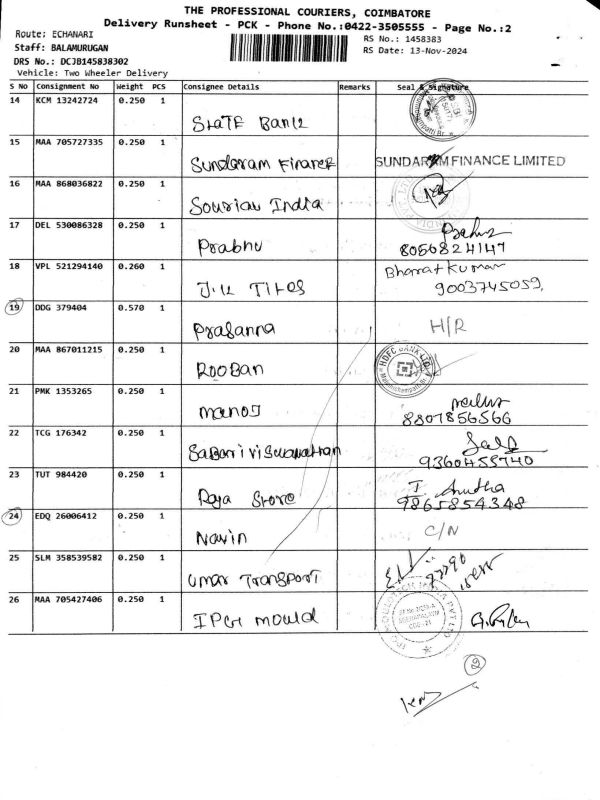 THE PROFESSIONAL COURIERS, COIMBATORE
Delivery Runsheet - PCK - Phone No.:0422-3505555 - Page No.:2
Route: ECHANARI
RS No.: 1458383
Staff: BALAMURUGAN
RS Date: 13-Nov-2024
DRS No.: DCJB145838302
Vehicle: Two Wheeler Delivery
S No Consignment No Weight PCS Consignee Details Remarks Seal & Signature
14 KCM 13242724 0.250 1
State Bank
15 MAA 705727335 0.250 1
Sundaram Finance SUNDARAM FINANCE LIMITED
16 MAA 868036822 0.250 1
Souriau India
17 DEL 530086328 0.250 1
Prabhu 8056824147
18 VPL 521294140 0.260 1 Bharatkumar
J.K Tiles 9003745059.
19 DDG 379404 0.570 1
Prasanna H/R
20 MAA 867011215 0.250 1 HDFC BANK LTD
Rooban
21 PMK 1353265 0.250 1
Manoj 8807856566
22 TCG 176342 0.250 1
Sabari Viswanathan 9360455740
23 TUT 984420 0.250 1 I. Anutha
Raja Store 9865854348
24 EDQ 26006412 0.250 1
Navin C/N
25 SLM 358539582 0.250 1
Umar Transport
26 MAA 705427406 0.250 1
IPG Mould
2